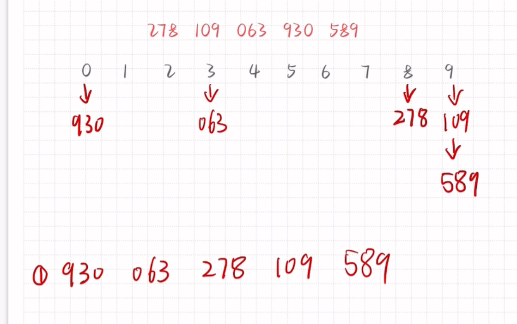 278 109 063 930 589
0 1 2 3 4 5 6 7 8 9
↓ ↓ ↓ ↓
930 063 278 109
↓
589
① 930 063 278 109 589